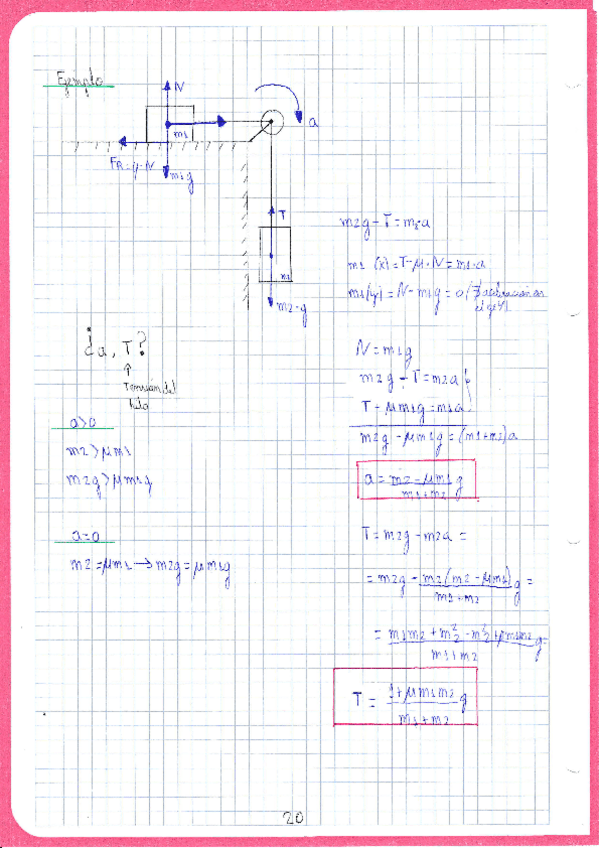 Ejemplo
N
a
m1
FR=μ·N
m1g
T
m2
m2·g
m2g-T=m2a
m1 (x)=T-μ·N=m1·a
m1(y)=N-m1g=0/∄
¿a, T?
↑
Tensión del
hilo
N=m1g
m2g-T=m2a
T-μm1g=m1a
m2g-μm1g=(m1+m2)a
a=(m2-μm1)/(m1+m2) g
a>0
m2>μm1
m2g>μm1g
a=0
m2=μm1→m2g=μm1g
T=m2g-m2a=
=m2g-m2(m2-μm1)/(m1+m2) g=
=(m1m2+m2²-m2²+μm1m2)/(m1+m2) g=
T=(1+μm1m2)/(m1+m2) g
20